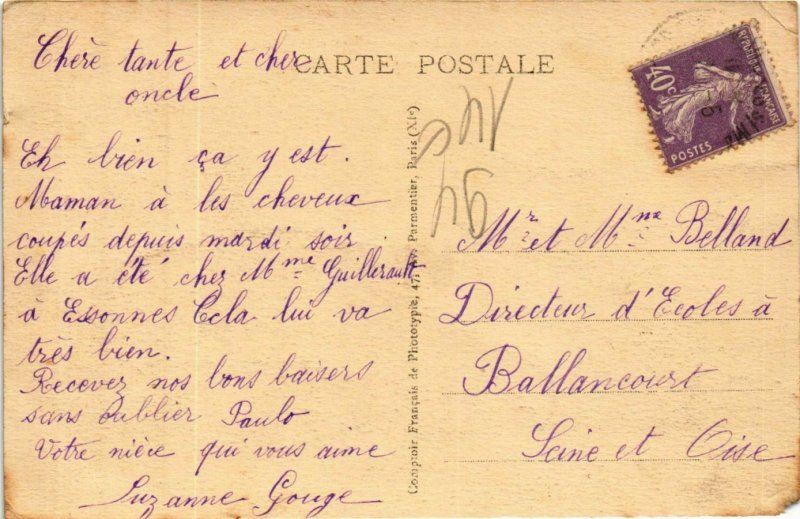 CARTE POSTALE
Chère tante et cher
oncle
Eh bien ça y est.
Maman à les cheveux
coupés depuis mardi soir.
Elle a été chez Mme Guillerault
à Essonnes Cela lui va
très bien.
Recevez nos bons baisers
sans oublier Paulo
Votre nièce qui vous aime
Suzanne Gouge
Comptoir Français de Phototypie, 47, Av. Parmentier, Paris (XIe)
REPUBLIQUE FRANÇAISE
40c
POSTES
Mr et Mme Belland
Directeur d'Ecoles à
Ballancourt
Seine et Oise